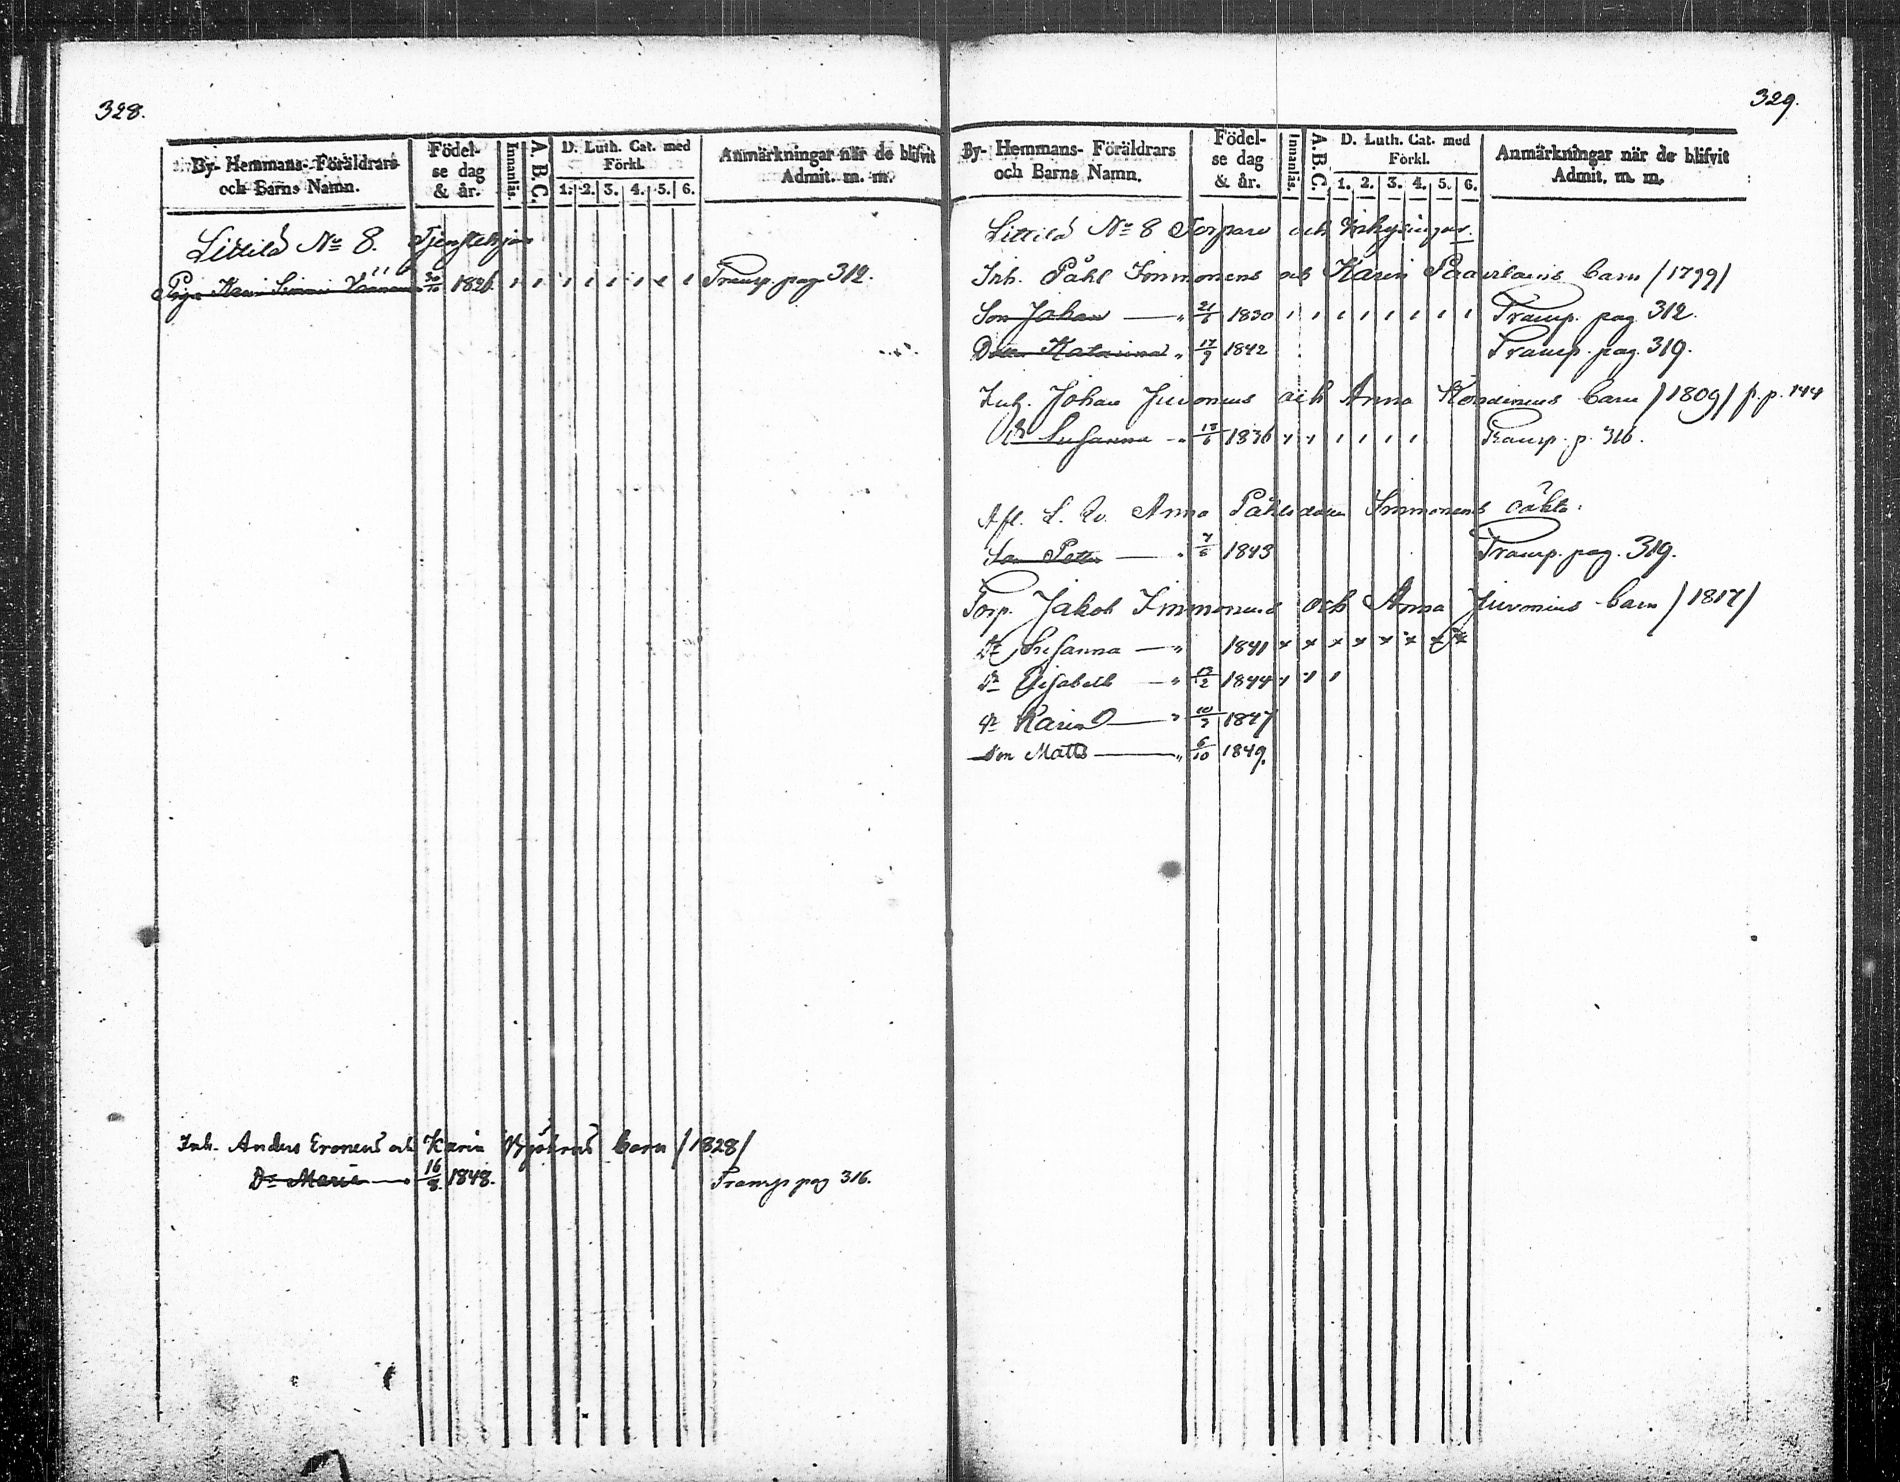 328.
By- Hemmans- Föräldrars och Barns Namn.
Födel-se dag & år.
Innanläs.
A. B. C.
D. Luth. Cat. med Förkl.
1. 2. 3. 4. 5. 6.
Anmärkningar när de blifvit Admit. m. m.
Littilä No 8. Tjenstehjon
Pig. Karin Simonsd. Väänän 30/10 1826 Transp. pag. 312.
Inh. Anders Eronens och Karin barn /1828/
Dr Maria 16/8 1848. Transp pag 316.
329.
By- Hemmans- Föräldrars och Barns Namn.
Födel-se dag & år.
Innanläs.
A. B. C.
D. Luth. Cat. med Förkl.
1. 2. 3. 4. 5. 6.
Anmärkningar när de blifvit Admit. m. m.
Littilä No 8 Torpare och Inhysingar.
Inh. Påhl Immonens och Karin barn /1799/
Son Johan " 21/6 1830 Transp. pag 312.
Dottr Katarina " 17/9 1842 Transp. pag. 319.
Inh. Johan Juvonens och Anna barn /1809/ p. p. 144
Dr Susanna " 13/6 1836 Transp. p. 316.
Afl. L. Qv. Anna Påhlsdotter Immonens oäkta
Son Petter " 7/6 1843 Transp. pag. 319.
Torp. Jakob Immonens och Anna Juvonens barn /1817/
Dr Susanna " 1841 x x x x x x x x
Dr Elisabeth " 13/2 1844
Dr Karin " 10/3 1847
Son Matts " 6/10 1849.